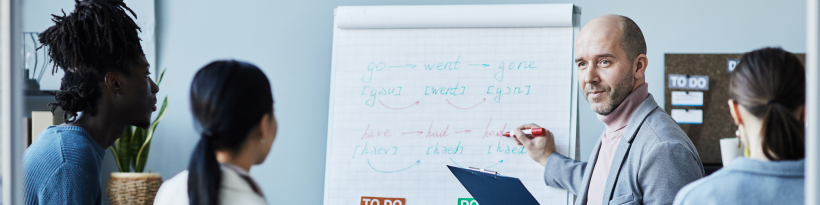 go → went → gone
[gəʊ] [went] [gɒn]
have → had → had
[hæv] [hæd] [hæd]
TO DO
TO DO